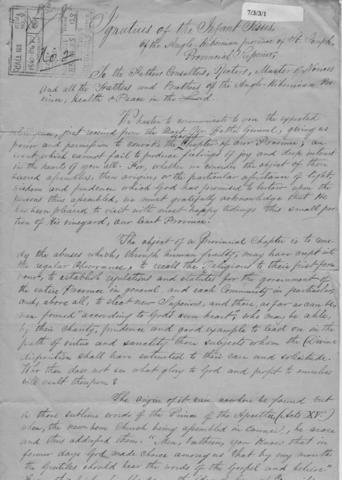 7/3/3/1
No. 2
Ignatius of the Infant Jesus
of the Anglo Hibernian province of St Joseph
Provincial Superior,
To the Fathers Consultors, Rectors, Master of Novices
and all the Fathers and Brothers of the Anglo Hibernian Pro-
vince, health & Peace in the Lord.
We hasten to communicate to you the expected
just received from the Most Rev. Father General, giving us
power and permission to convoke the Chapter of our Province; an
event which cannot fail to produce feelings of joy and
in the hearts of you all. For, whether we consider the object of these
sacred assemblies, their origin or the particular assistance of light
wisdom and prudence which God has promised to bestow upon the
persons thus assembled, we must gratefully acknowledge that He
has been pleased to visit with most happy tidings this small por-
tion of His vineyard, our dear Province.
The object of a Provincial Chapter is to
the abuses which, through human frailty, may have crept into
the regular Observance, to recall the religious to their first fer-
vour, to establish regulations and statutes for the government of
the entire Province in general and each Community in particular,
and, above all, to elect new Superiors, and those, as far as can be,
men formed according to God's own heart, who may be able,
by their charity, prudence and good example to lead on in the
path of virtue and sanctity those subjects whom the Divine
disposition shall have entrusted to their care and solicitude.
Who then does not see what glory to God and profit to ourselves
will result therefrom?
The origin of it can be found out
in those sublime words of the Prince of the Apostles (Acts XV)
when, the new born Church being assembled in Council, he arose
and thus addressed them: "Men, brethren, you know that in
former days God made choice among us that by my mouth
the Gentiles should hear the words of the Gospel and believe"